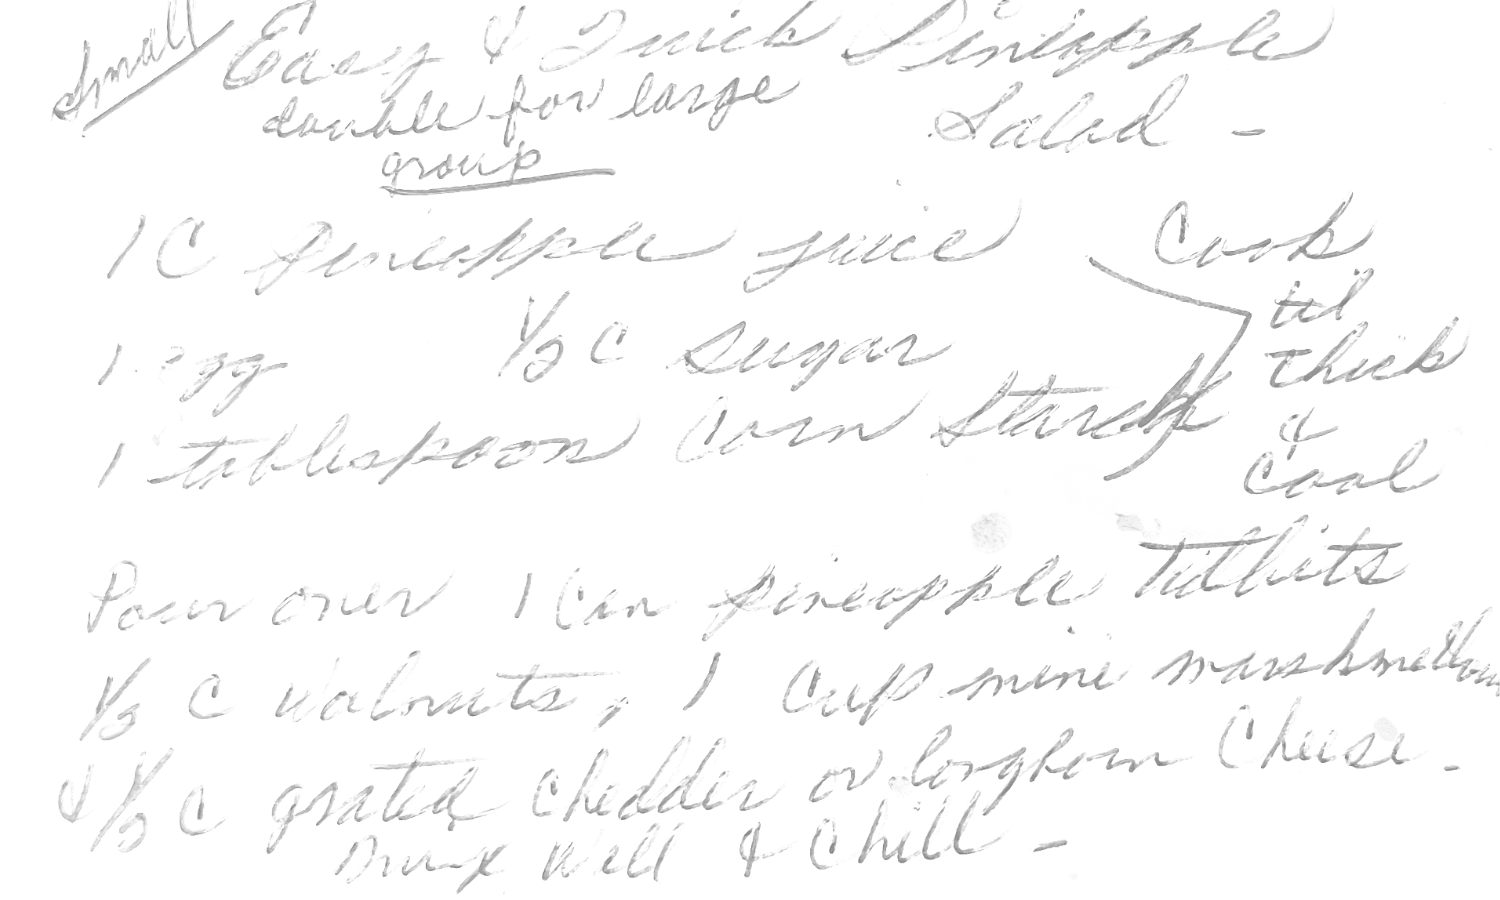 Small Easy & Quick Pineapple
double for large Salad -
group
1 C pineapple juice Cook
til
1 egg 1/2 C sugar thick
1 tablespoon Corn Starch &
Cool
Pour over 1 Can pineapple Titbits
1/2 C Walnuts, 1 Cup mini marshmellows
& 1/2 C grated Chedder or longhorn Cheese -
Mix Well & Chill -